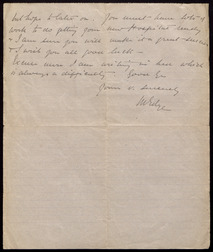 but hope to later on. You must have lots of
work to do getting your new Hospital ready
& I am sure you will make it a great success
& I wish you all good luck -
Excuse mess I am writing in bed which
is always a difficulty. Good bye
Yours v. sincerely